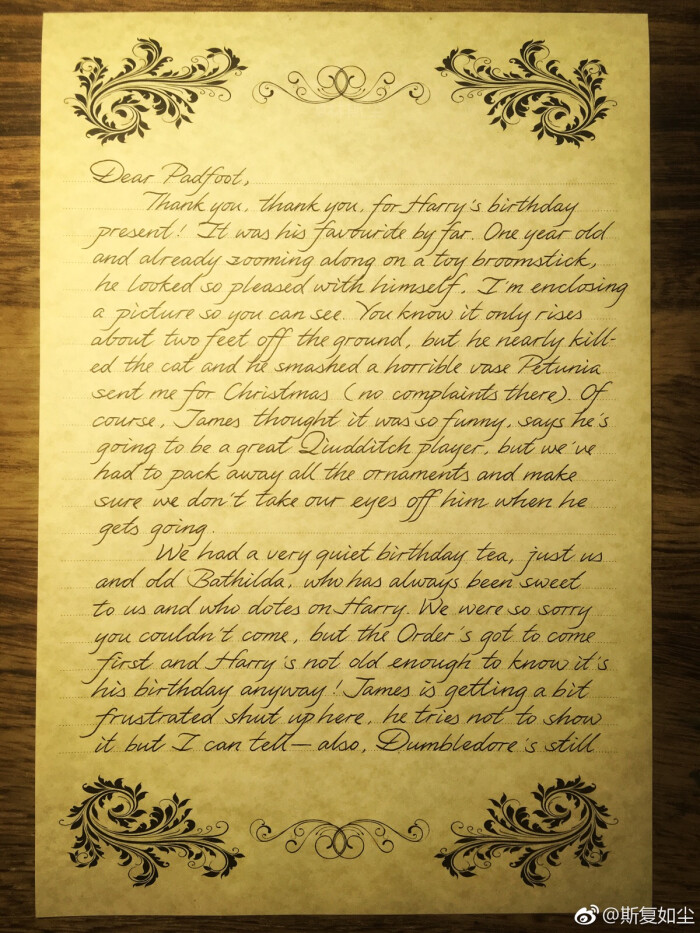 Dear Padfoot,
Thank you, thank you, for Harry's birthday
present! It was his favourite by far. One year old
and already zooming along on a toy broomstick,
he looked so pleased with himself. I'm enclosing
a picture so you can see. You know it only rises
about two feet off the ground, but he nearly kill-
ed the cat and he smashed a horrible vase Petunia
sent me for Christmas (no complaints there). Of
course, James thought it was so funny, says he's
going to be a great Qiudditch player, but we've
had to pack away all the ornaments and make
sure we don't take our eyes off him when he
gets going.
We had a very quiet birthday tea, just us
and old Bathilda, who has always been sweet
to us and who dotes on Harry. We were so sorry
you couldn't come, but the Order's got to come
first and Harry's not old enough to know it's
his birthday anyway! James is getting a bit
frustrated shut up here, he tries not to show
it but I can tell — also, Dumbledore's still
@斯复如尘